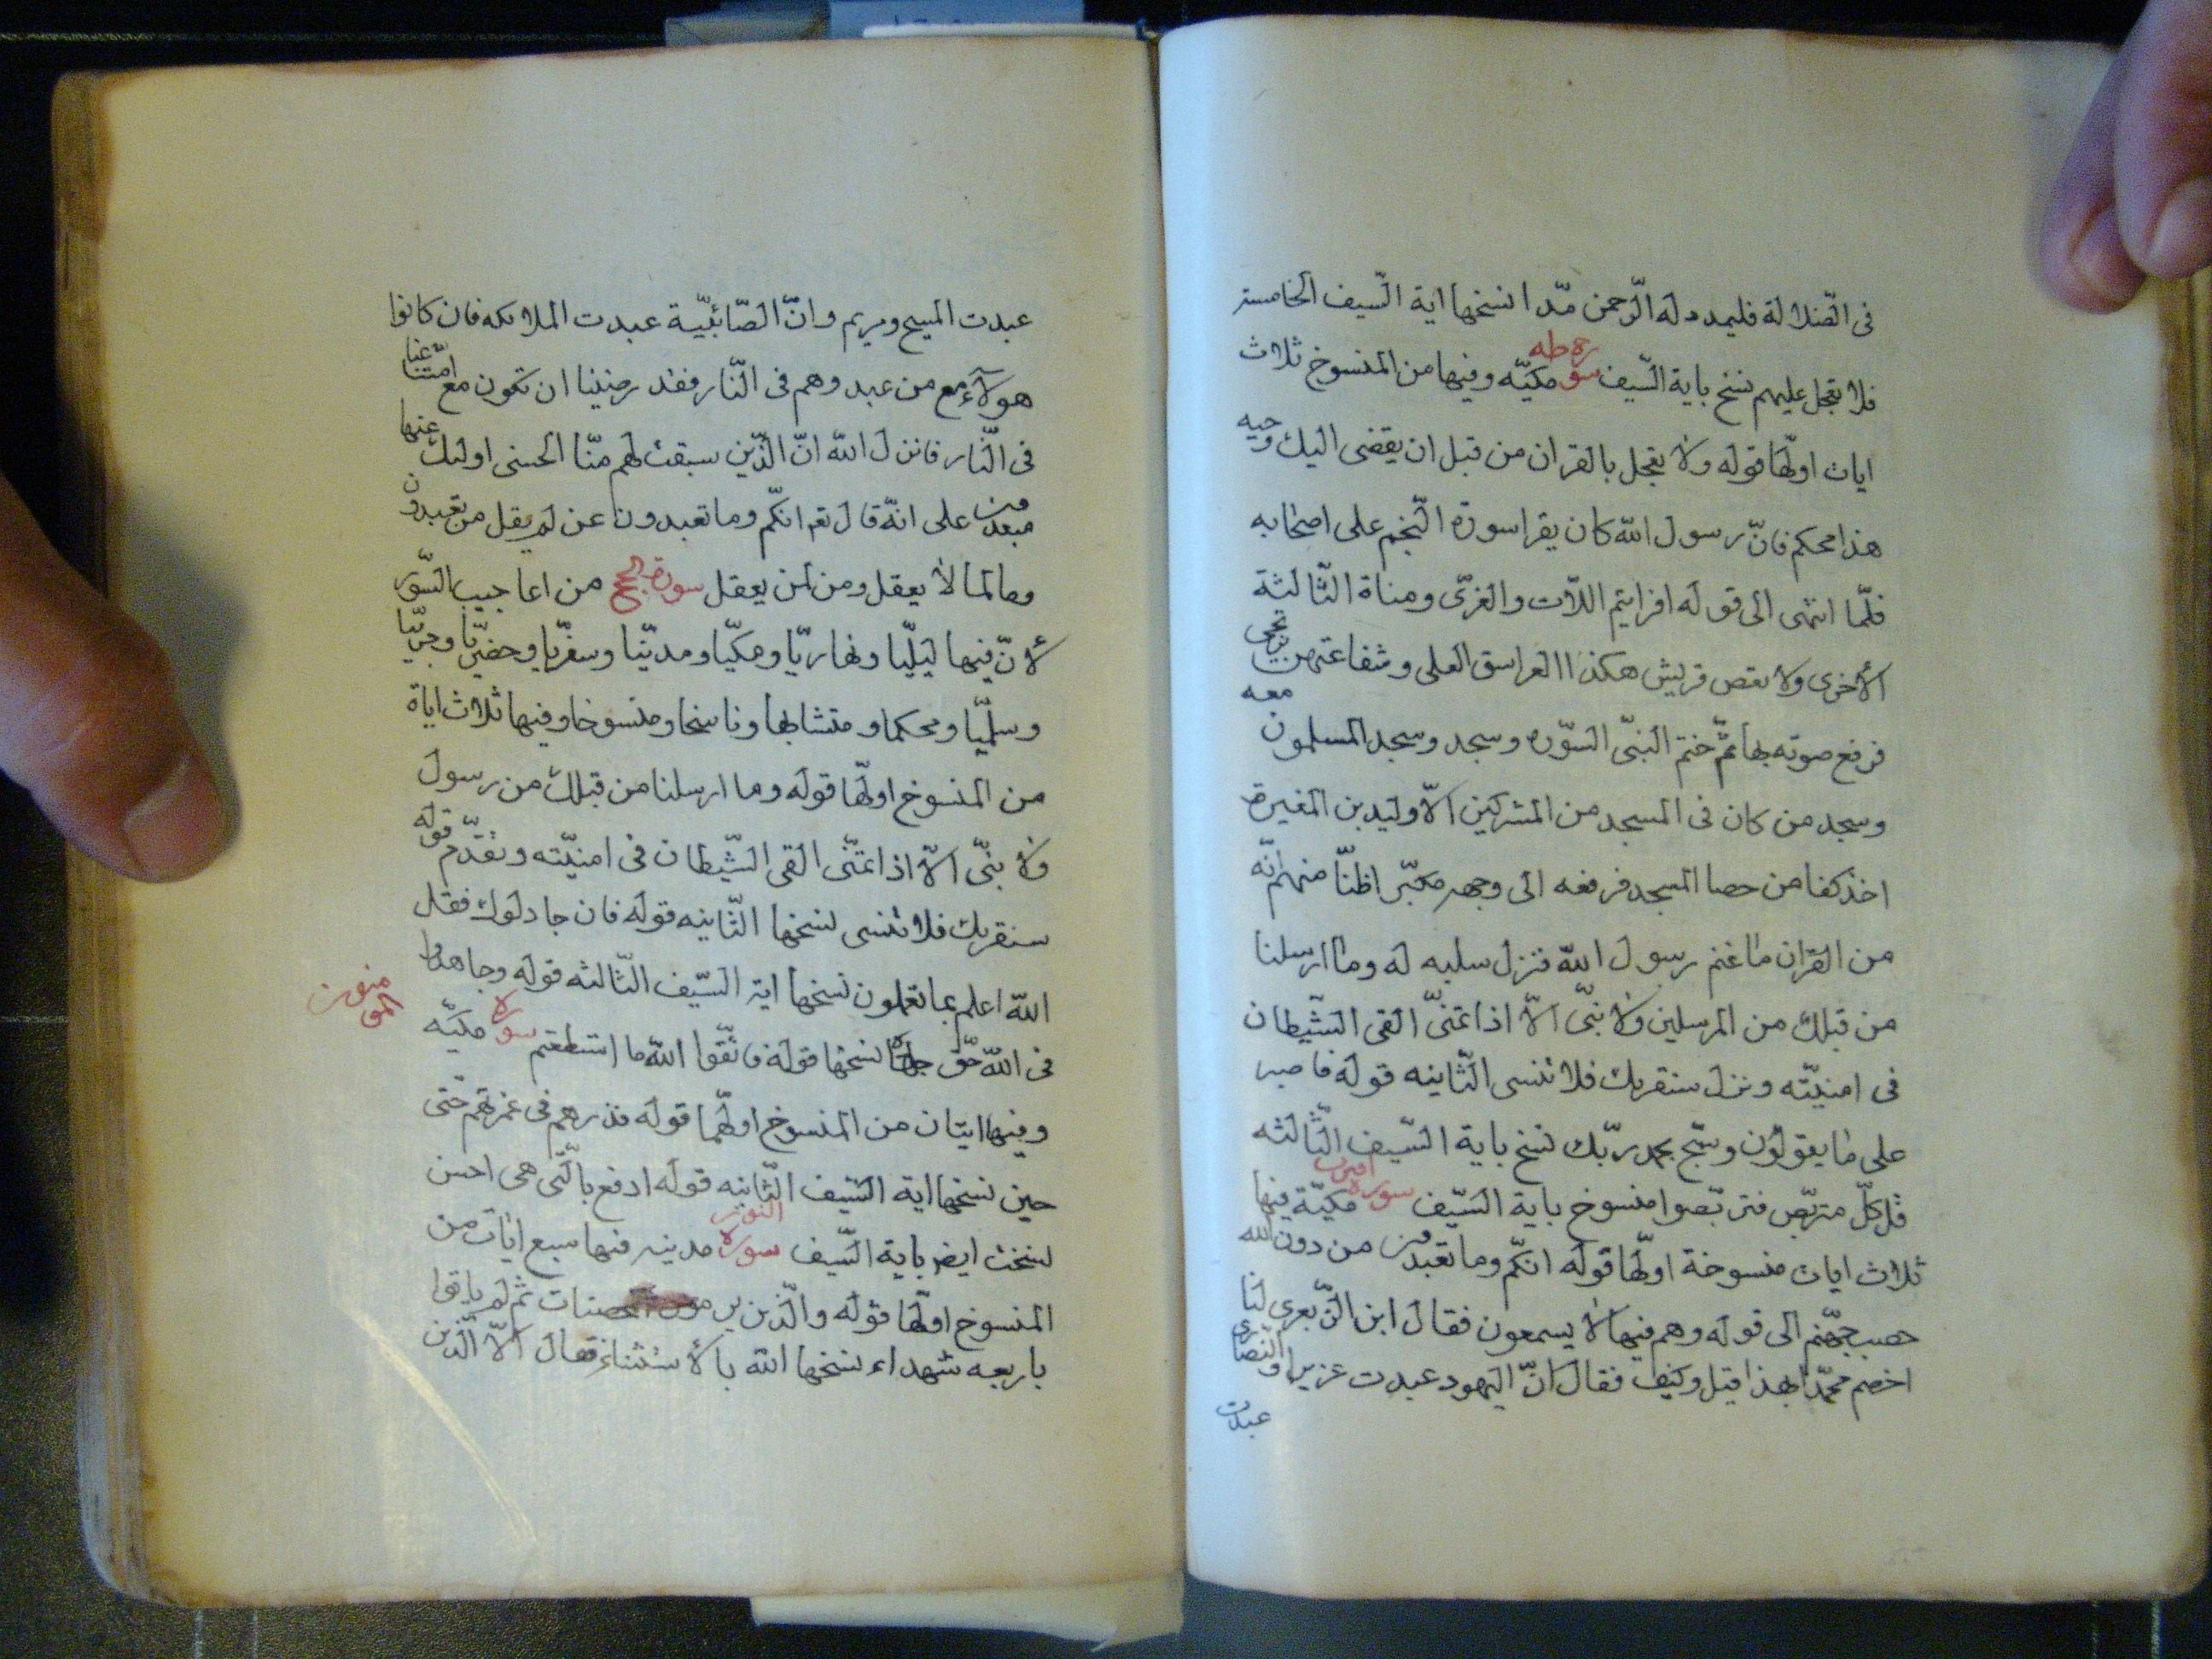 فى الضّلالة فليمدد له الرّحمن مدّا نسخها اية السّيف الخامسة
فلا تعجل عليهم نسخ باية السّيف سورة طه مكيّه وفيها من المنسوخ ثلاث
ايات اولها قوله ولا تعجل بالقران من قبل ان يقضى اليك وحيه
هذا محكم فانّ رسول الله كان يقرا سورة النّجم على اصحابه
فلمّا انتهى الى قوله افرايتم اللاّت والعزّى ومناة الثّالثة
الأخرى قريش هكذا العلى وشفاعتهن ترتجى
فرفع صوته بها ثمّ ختم النبىّ السّوره وسجد وسجد المسلمون معه
وسجد من كان فى المسجد من المشركين الاّ وليد بن المغيرة
اخذ كفا من حصا المسجد فرفعه الى وجهه مكبّر اظنّا منهم انّه
من القران ما غنم رسول الله فنزل سليه له وما ارسلنا
من قبلك من المرسلين ولا نبىّ الاّ اذا تمنىّ القى الشّيطان
فى امنيّته ونزل سنقريك فلا تنسى الثّانيه قوله فاصبر
على ما يقولون وسبّح بحمد ربّك نسخ باية السّيف الثّالثه
قل كلّ متربّص فتربّصوا منسوخ باية السّيف سورة مكيّة فيها
ثلاث ايات منسوخة اولّها قوله انكّم وما تعبدون من دون الله
حصب جهّنم الى قوله وهم فيها لا يسمعون فقال ابن الزّبعرى لنا
اخصم محمّدا بهذا قيل وكيف فقال انّ اليهود عبدت عزيرا والنّصارى
عبدت
عبدت المسيح ومريم وانّ الصّائبيّة عبدت الملائكه فان كانوا
هولآء مع من عبدوهم فى النّار فقد رضينا ان تكون مع
فى النّار فانزل الله انّ الّذين سبقت لهم منّا الحسنى اولئك عنها
مبعدون على انّه قال تعم انكّم وما تعبدون عن لم يقل من تعبدون
وما لما لا يعقل ومن لمن يعقل سورة الحج من اعاجيب السّور
لأنّ فيها ليليّا ونهاريّا ومكيّا ومدنيّا وسفريّا وحضريّا وحربيّا
وسلميّا ومحكما ومتشابها وناسخا ومنسوخا وفيها ثلاث اياة
من المنسوخ اولّها قوله وما ارسلنا من قبلك من رسول
ولا نبىّ الاّ اذا تمنّى القى الشّيطان فى امنيّته وتقدّم قوله
سنقريك فلا تنسى نسخها الثّانيه قوله فان جادلوك فقل
الله اعلم بما تعملون نسخها اية السّيف الثّالثه قوله وجاهدوا
فى الله حقّ جهاده نسخها قوله فاتّقوا الله ما استطعتم سورة مكيّه
المومنون
وفيها ايتان من المنسوخ اولهما قوله فذرهم فى غمرتهم حتّى
حين نسخها اية السّيف الثّانيه قوله ادفع بالّتى هى احسن
نسخت ايضا باية السّيف سورة النور مدنيه فيها سبع ايات من
المنسوخ اولّها قوله والّذين يرمون المحصنات ثم لم ياتوا
باربعه شهداء نسخها الله بالأستثناء فقال الاّ الّذين